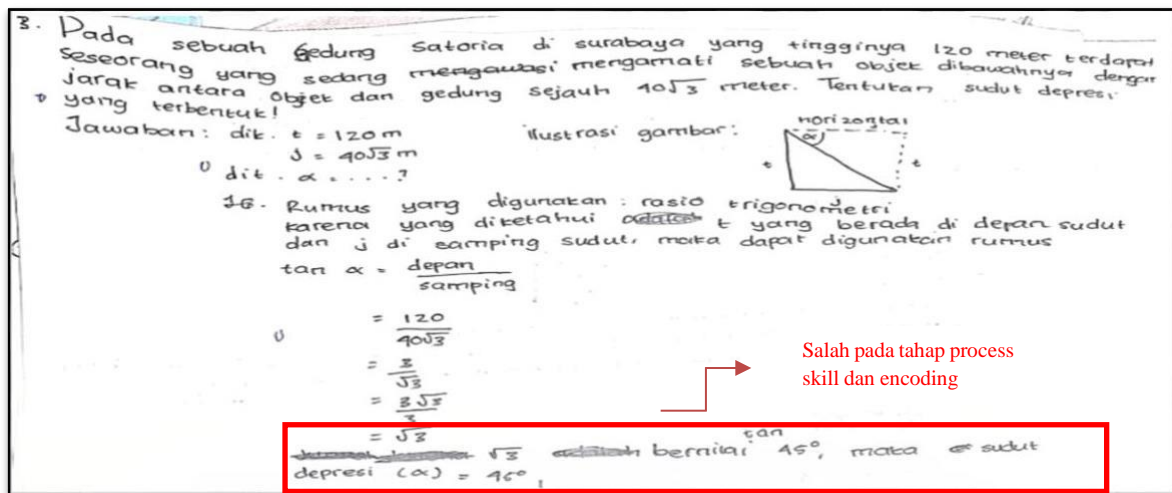 3. Pada sebuah Gedung Satoria di surabaya yang tingginya 120 meter terdapat
seseorang yang sedang mengamati sebuah objek dibawahnya dengan
jarak antara objek dan gedung sejauh 40√3 meter. Tentukan sudut depresi
yang terbentuk!
Jawaban: dik. t = 120 m
j = 40√3 m
dit. α = ....?
ilustrasi gambar:
horizontal
α
t
t
j
Jb. Rumus yang digunakan: rasio trigonometri
karena yang diketahui t yang berada di depan sudut
dan j di samping sudut, maka dapat digunakan rumus
tan α = depan
samping
= 120
40√3
= 3
√3
= 3√3
3
= √3
√3 bernilai tan 45°, maka sudut
depresi (α) = 45°
Salah pada tahap process
skill dan encoding